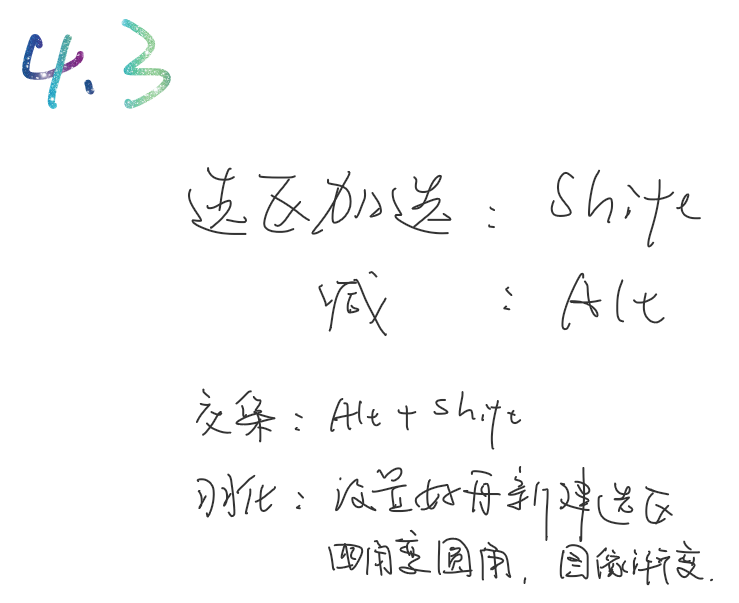 4.3
选区加选：Shife
减：Alt
交集：Alt+shift
羽化：设置好再新建选区
四角变圆角，图像渐变.